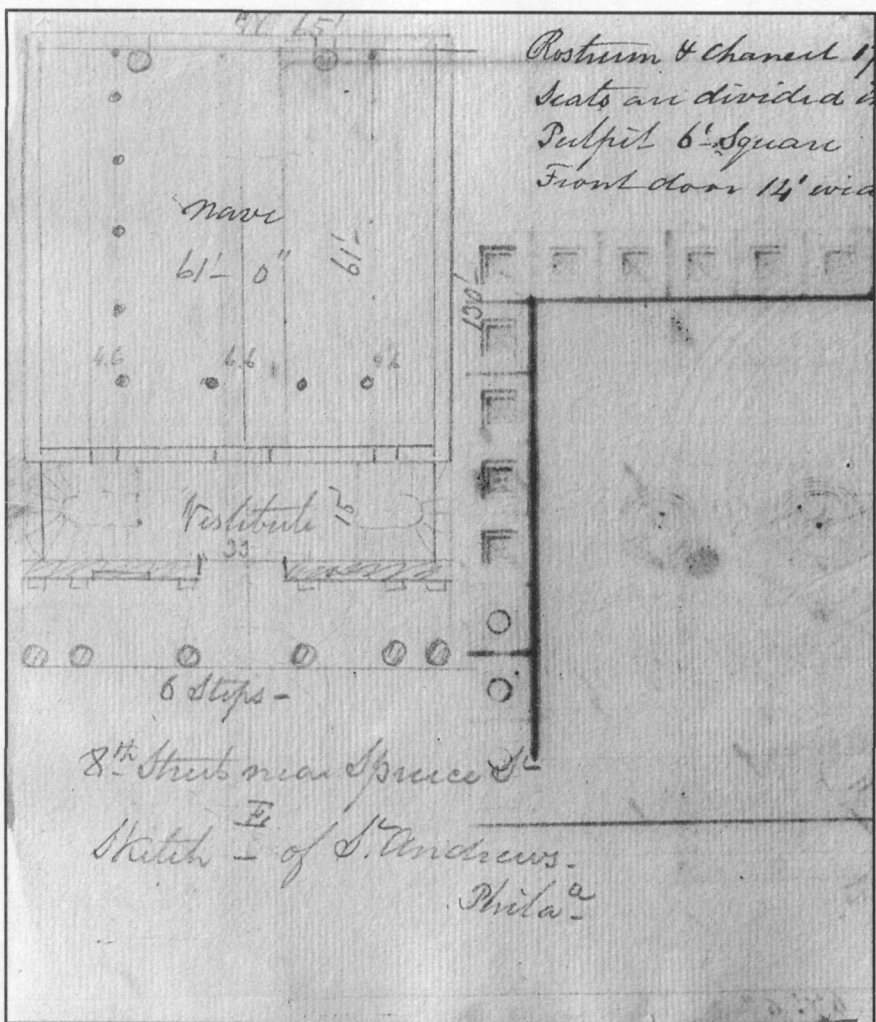 65'
Rostrum & Chancel 17
Seats are divided in
Pulpit 6' Square
Front door 14' wid
Nave
61'- 0"
61'-
4.6 6.6 6.6
Vestibule
33
6 Steps -
8th Street near Spruce St
E
Sketch - of St. Andrews.
Phila